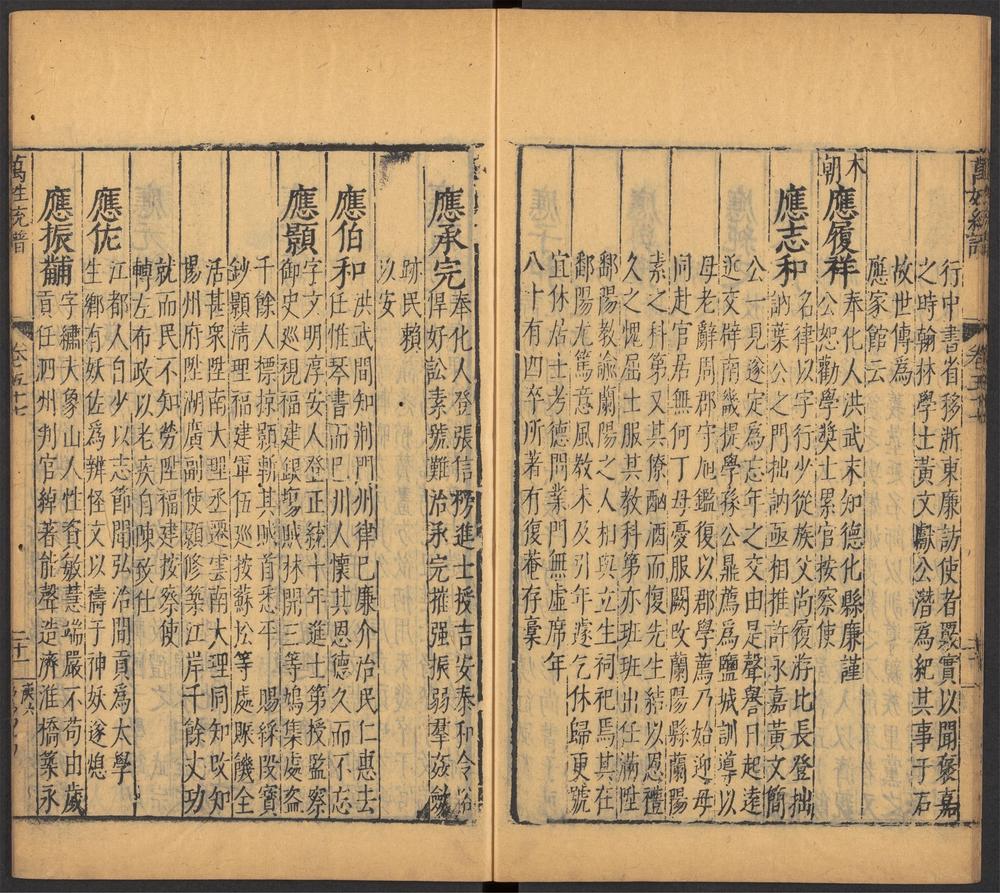 行中書省移浙東廉訪使者覈實以聞褒嘉
之時翰林學士黃文獻公潛為紀其事于石
故世傳爲
應家館云
本朝
應履祥奉化人洪武末知德化縣廉謹
公恕勸學奬士累官按察使
應志和名律以字行少從族父尚履游比長登拙
訥葉公之門拙訥亟相推許永嘉黃文簡
公一見遂定為忘年之交由是聲譽日起遠
近交辟南畿提學孫公鼎薦爲鹽城訓導以
母老辭周郡守旭鑑復以郡學薦乃始迎母
同赴官居無何丁母憂服闋改蘭陽縣蘭陽
素之科第又其僚酗酒而愎先生結以恩禮
久之愧屈士服其教科第亦班班出任滿陞
鄱陽教諭蘭陽之人相與立生祠祀焉其在
鄱陽尤篤意風教未及引年遂乞休歸更號
宜休居士考德問業門無虛席年
八十有四卒所著有復菴存稾
應承完奉化人登張信榜進士授吉安泰和令俗
悍好訟素號難治承完摧强振弱羣姦斂
跡民賴
以安
應伯和洪武間知荊門州律已廉介治民仁惠去
任惟琴書而巳州人懷其恩德久而不忘
應顥字文明淳安人登正統十年進士第授監察
御史巡視福建銀塲賊林開三等鳩集處盜
千餘人標掠顥斬其賊首悉平 賜綵叚寳
鈔顥淸理福建軍伍巡按蘇松等處賑饑全
活甚衆陞南大理丞遷雲南大理同知改知
揚州府陞湖廣副使顥修築江岸千餘丈功
就而民不知勞陞福建按察使
轉左布政以老疾自陳致仕
應佐江都人自少以志節聞弘治間貢爲太學
生鄉有妖佐爲辨怪文以禱于神妖遂熄
應振黼字繡夫象山人性資敏慧端嚴不苟由歲
貢任泗州判官綽著能聲造濟淮橋築永
萬姓統譜
卷五十七